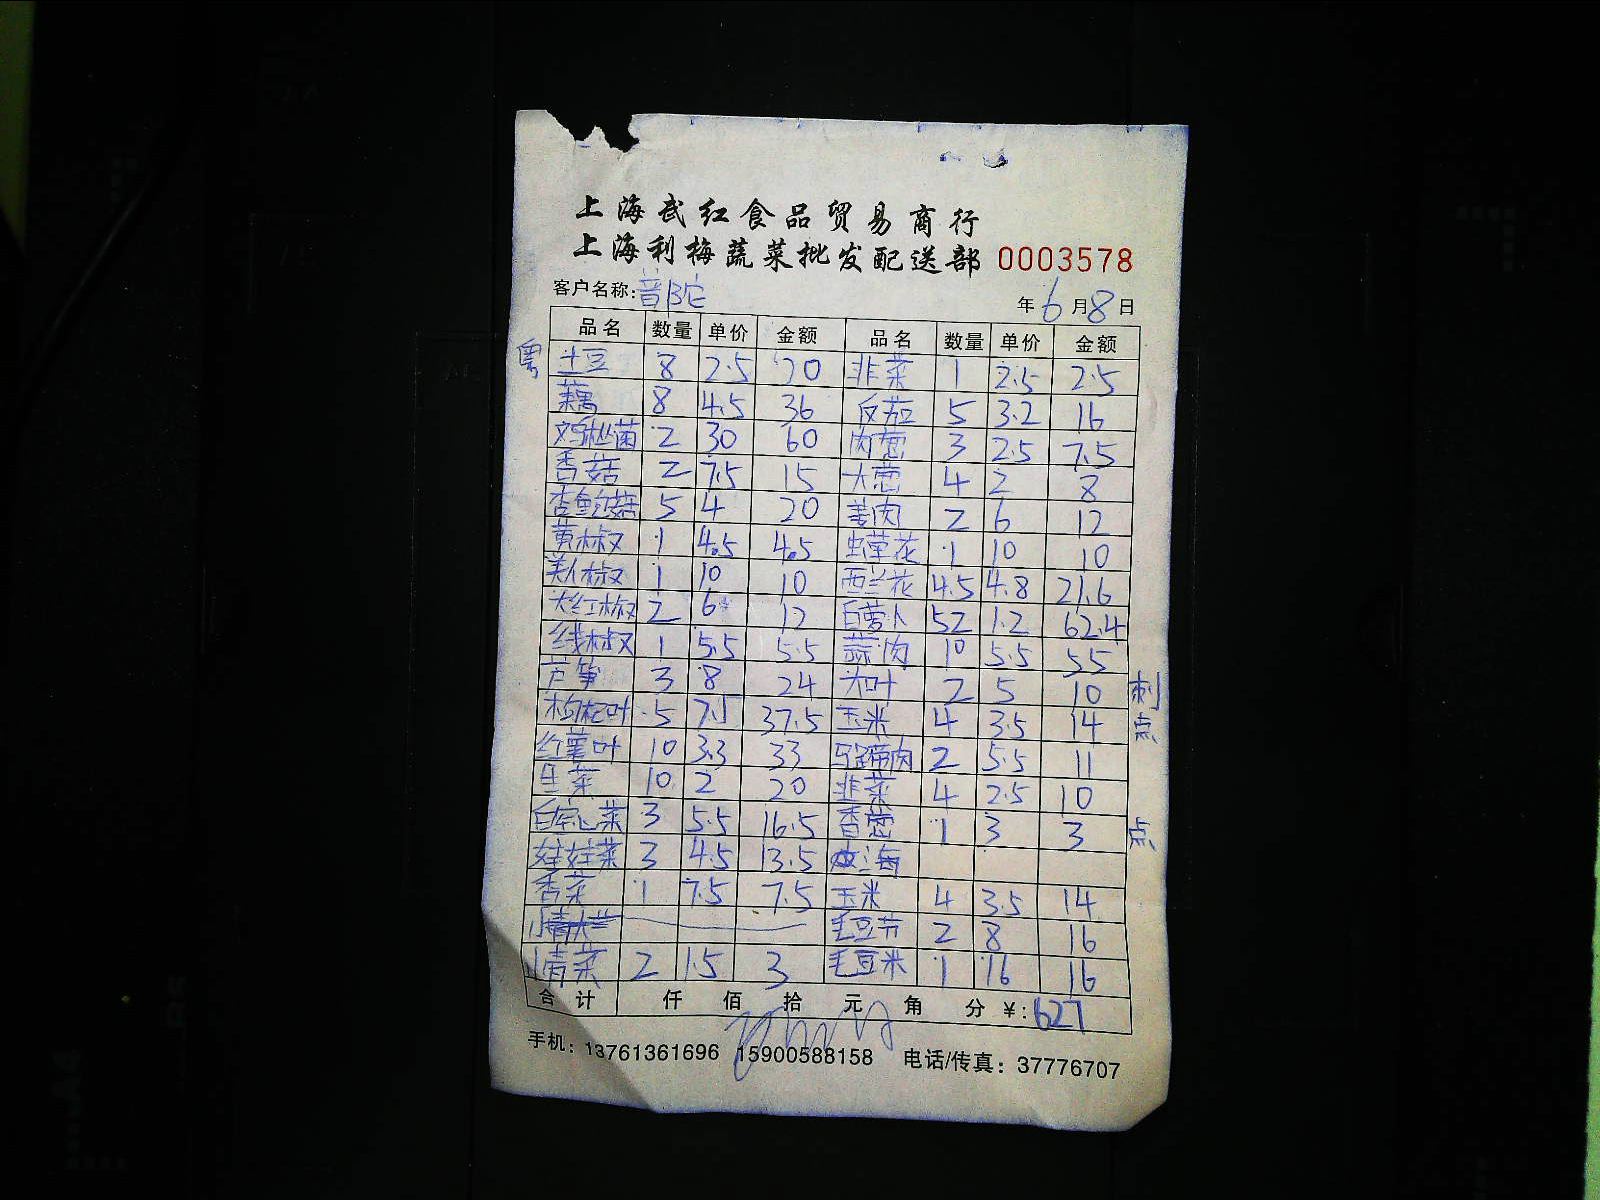 上海武红食品贸易商行
上海利梅蔬菜批发配送部 0003578
客户名称:普陀 年6月8日
品名 数量 单价 金额 品名 数量 单价 金额
土豆 8 2.5 20 韭菜 1 2.5 2.5
藕 8 4.5 36 反茄 5 3.2 16
鸡枞菌 2 30 60 肉葱 3 2.5 7.5
香菇 2 7.5 15 大葱 4 2 8
杏鲍菇 5 4 20 姜肉 2 6 12
黄椒 1 4.5 4.5 虫草花 1 10 10
美人椒 1 10 10 西兰花 4.5 4.8 21.6
大红椒 2 6 12 白萝卜 52 1.2 62.4
线椒 1 5.5 5.5 蒜肉 10 5.5 55
芦笋 3 8 24 大叶 2 5 10 刺
枸杞叶 5 7.5 37.5 玉米 4 3.5 14 点
红薯叶 10 3.3 33 马蹄肉 2 5.5 11
生菜 10 2 20 韭菜 4 2.5 10
白空心菜 3 5.5 16.5 香葱 1 3 3 点
娃娃菜 3 4.5 13.5 海
香菜 1 7.5 7.5 玉米 4 3.5 14
毛豆节 2 8 16
小青菜 2 1.5 3 毛豆米 1 16 16
合计 仟 佰 拾 元 角 分 ¥:627
手机:13761361696 15900588158 电话/传真:37776707